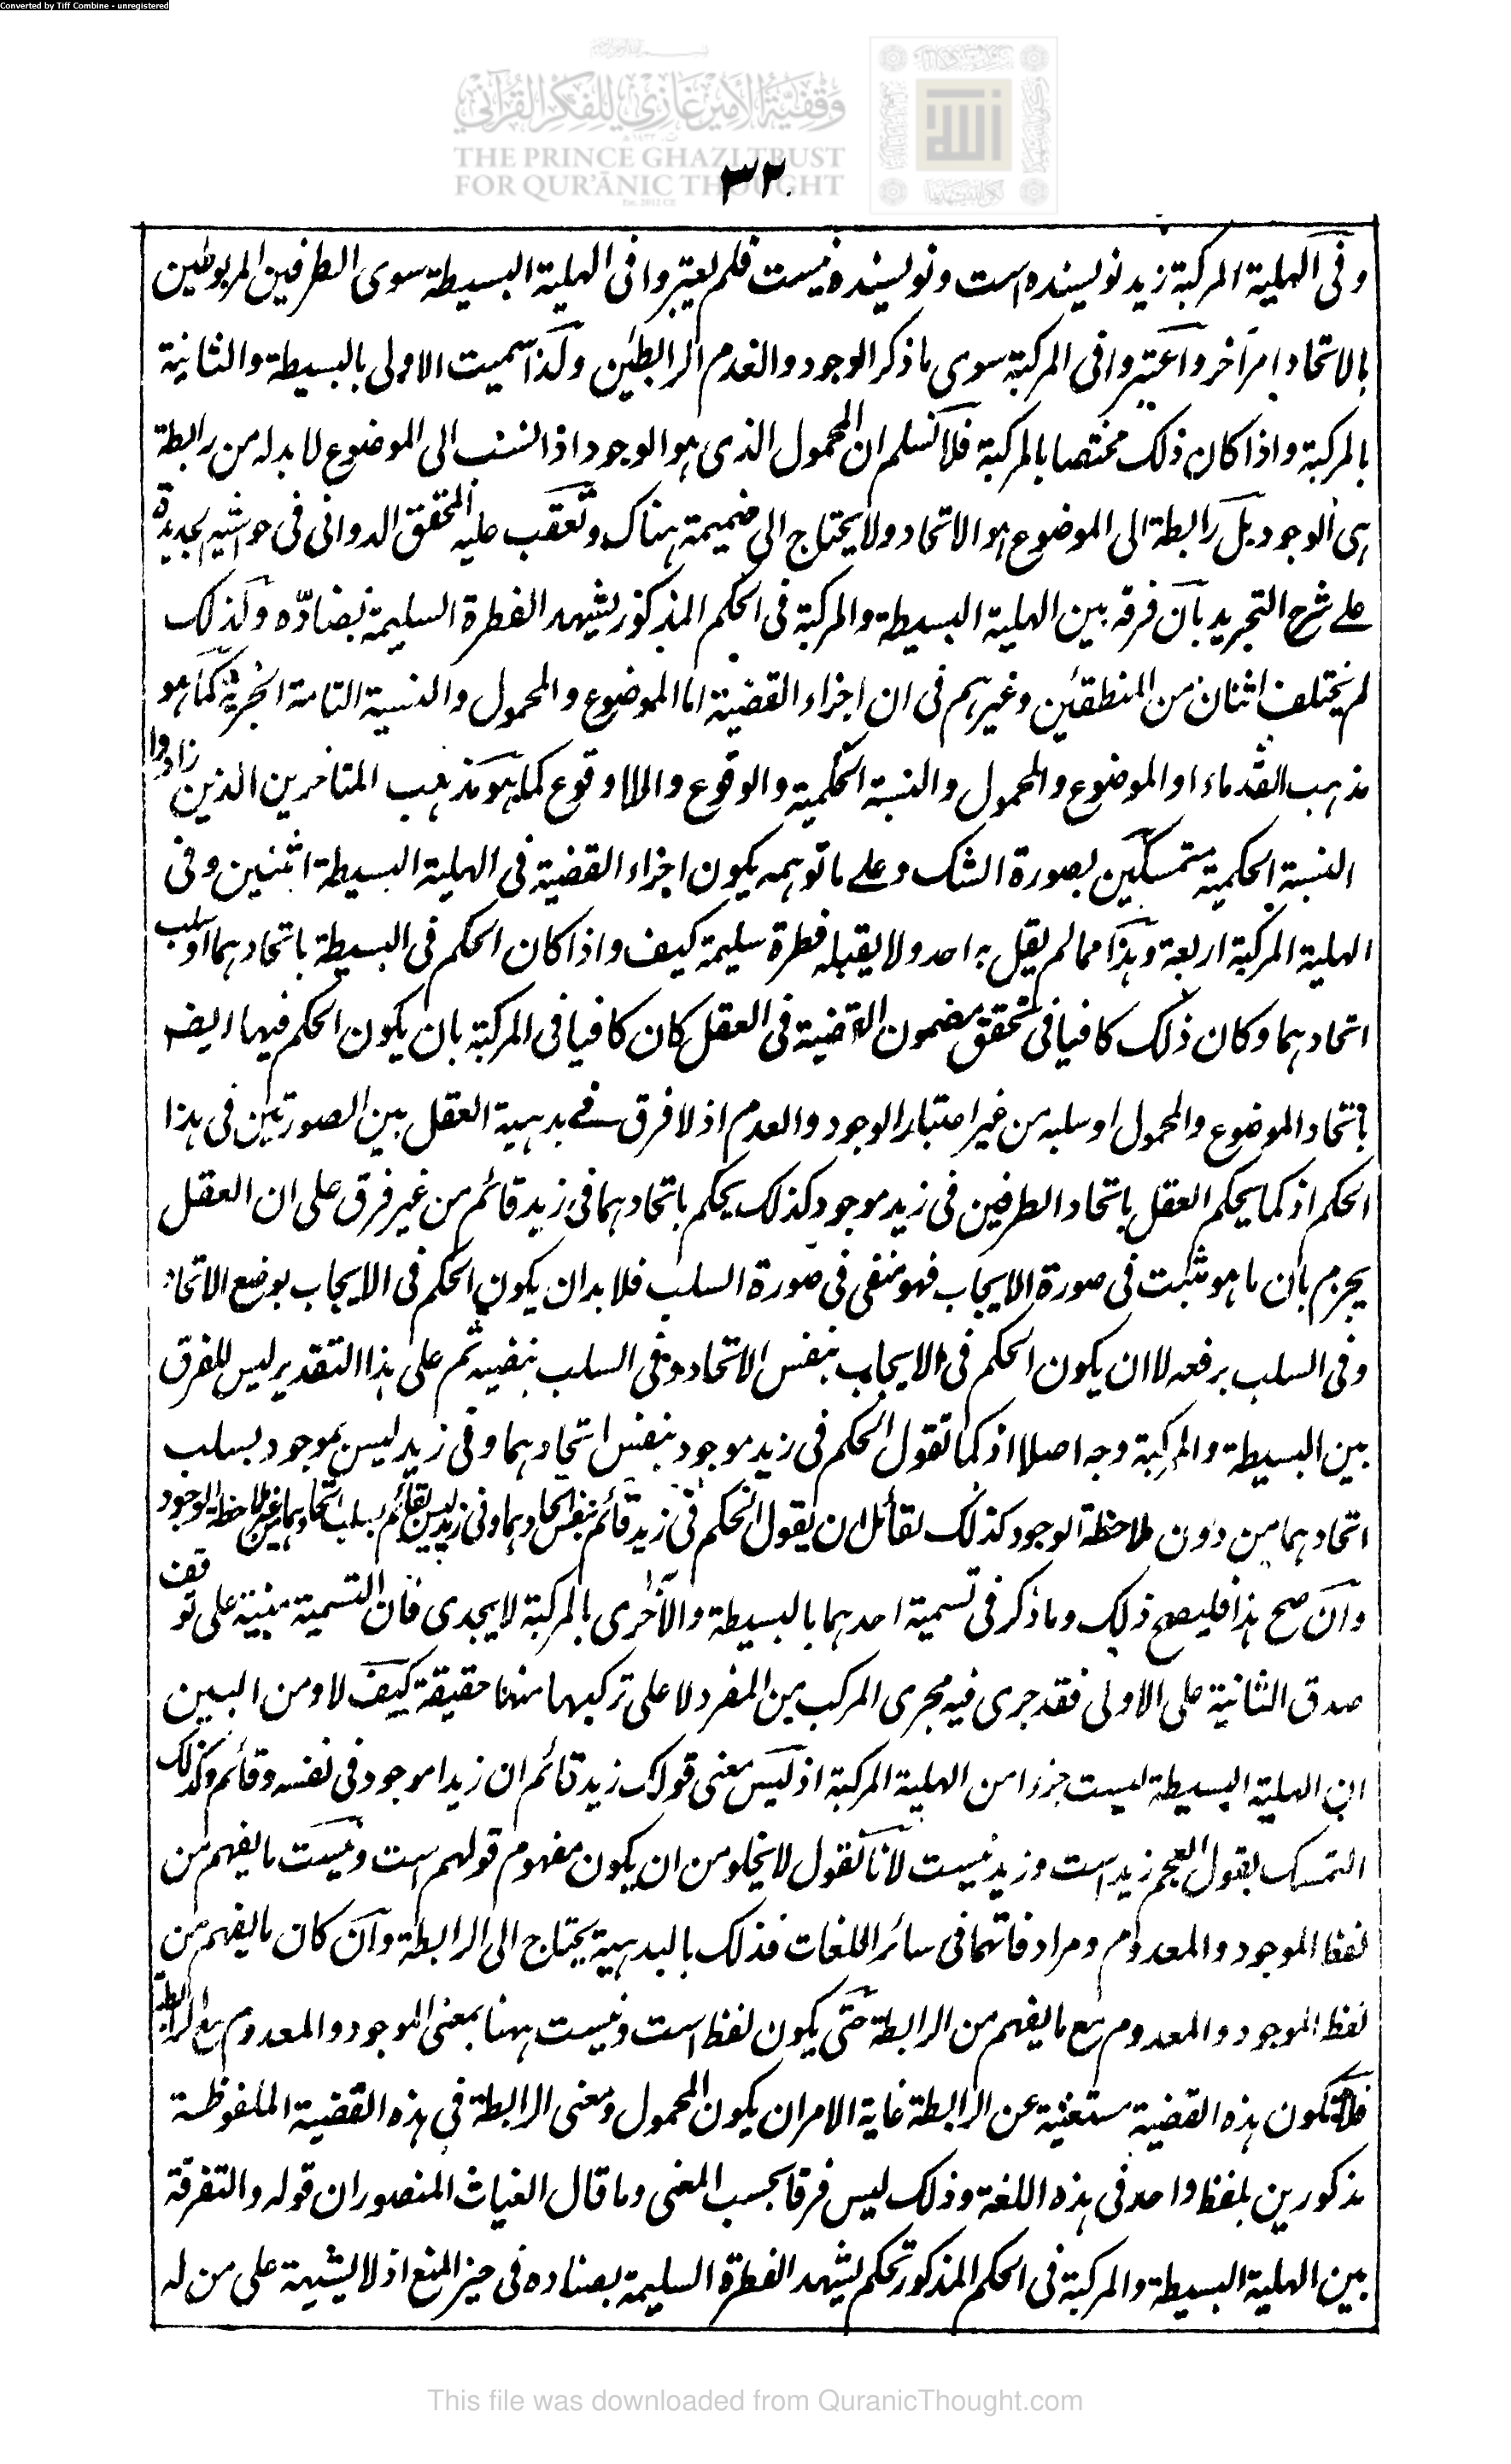 Converted by Tiff Combine - unregistered
وقفية الأمير غازي للفكر القرآني
THE PRINCE GHAZI TRUST
FOR QUR'ĀNIC THOUGHT
٣٢
وفى الهلية المركبة زيد نويسنده است ونويسنده نيست فلم يعتبروا فى الهلية البسيطة سوى الطرفين المربوطين
بالاتحاد امرا آخر واعتبروا فى المركبة سوى ما ذكر الوجود والعدم الرابطين ولذا سميت الاولى بالبسيطة والثانية
بالمركبة واذا كان ذلك مختصا بالمركبة فلا نسلم ان المحمول الذى هو الوجود اذا انتسب الى الموضوع لا بد له من رابطة
هى الوجود بل رابطة الى الموضوع هو الاتحاد ولا يحتاج الى ضميمة هناك وتعقب عليه المحقق الدوانى فى حواشيه الجديدة
على شرح التجريد بان فرقه بين الهلية البسيطة والمركبة فى الحكم المذكور يشهد الفطرة السليمة بضاده ولذلك
لم يختلف اثنان من المنطقئين وغيرهم فى ان اجزاء القضية اما الموضوع والمحمول والنسبة التامة الخبرية كما هو
مذهب القدماء او الموضوع والمحمول والنسبة الحكمية والوقوع واللاوقوع كما هو مذهب المتاخرين الذين زادوا
النسبة الحكمية متمسكين بصورة الشك وعلى ما توهمه يكون اجزاء القضية فى الهلية البسيطة اثنين وفى
الهلية المركبة اربعة وهذا مما لم يقل به احد ولا يقبله فطرة سليمة كيف واذا كان الحكم فى البسيطة باتحادهما او سلب
اتحادهما وكان ذلك كافيا فى تحقق مضمون القضية فى العقل كان كافيا فى المركبة بان يكون الحكم فيها ايضا
باتحاد الموضوع والمحمول او سلبه من غير اعتبار الوجود والعدم اذ لا فرق فى بديهية العقل بين الصورتين فى هذا
الحكم اذ كما يحكم العقل باتحاد الطرفين فى زيد موجود كذلك يحكم باتحادهما فى زيد قائم من غير فرق على ان العقل
يجزم بان ما هو مثبت فى صورة الايجاب فهو منفى فى صورة السلب فلا بد ان يكون الحكم فى الايجاب بوضع الاتحاد
وفى السلب برفعه لا ان يكون الحكم فى الايجاب بنفس الاتحاد وفى السلب بنفيه ثم على هذا التقدير ليس للفرق
بين البسيطة والمركبة وجه اصلا اذ كما تقول الحكم فى زيد موجود بنفس اتحادهما وفى زيد ليس بموجود بسلب
اتحادهما من دون ملاحظة الوجود كذلك لقائل ان يقول الحكم فى زيد قائم بنفس اتحادهما وفى زيد ليس بقائم بسلب اتحادهما من غير ملاحظة الوجود
وان صح هذا فليصح ذلك وما ذكر فى تسمية احدهما بالبسيطة والاخرى بالمركبة لا يجدى فان التسمية مبنية على توقف
صدق الثانية على الاولى فقد جرى فيه مجرى المركب من المفرد لا على تركبها منها حقيقة كيف لا ومن البين
ان الهلية البسيطة ليست جزءا من الهلية المركبة اذ ليس معنى قولك زيد قائم ان زيدا موجود فى نفسه وقائم وكذلك
التمسك بقول العجم زيد است وزيد نيست لانا نقول لا يخلو من ان يكون مفهوم قولهم است ونيست ما يفهم من
لفظ الموجود والمعدوم ومرادفاتهما فى سائر اللغات فذلك بالبديهية يحتاج الى الرابطة وان كان ما يفهم من
لفظ الموجود والمعدوم مع ما يفهم من الرابطة حتى يكون لفظ است ونيست ههنا بمعنى الموجود والمعدوم مع الرابطة
فلا تكون هذه القضية مستغنية عن الرابطة غاية الامر ان يكون المحمول ومعنى الرابطة فى هذه القضية الملفوظة
مذكورين بلفظ واحد فى هذه اللغة وذلك ليس فرقا بحسب المعنى وما قال الغياث المنصور ان قوله والتفرقة
بين الهلية البسيطة والمركبة فى الحكم المذكور تحكم يشهد الفطرة السليمة بضاده فى حيز المنع اذ لا يشتبه على من له
This file was downloaded from QuranicThought.com